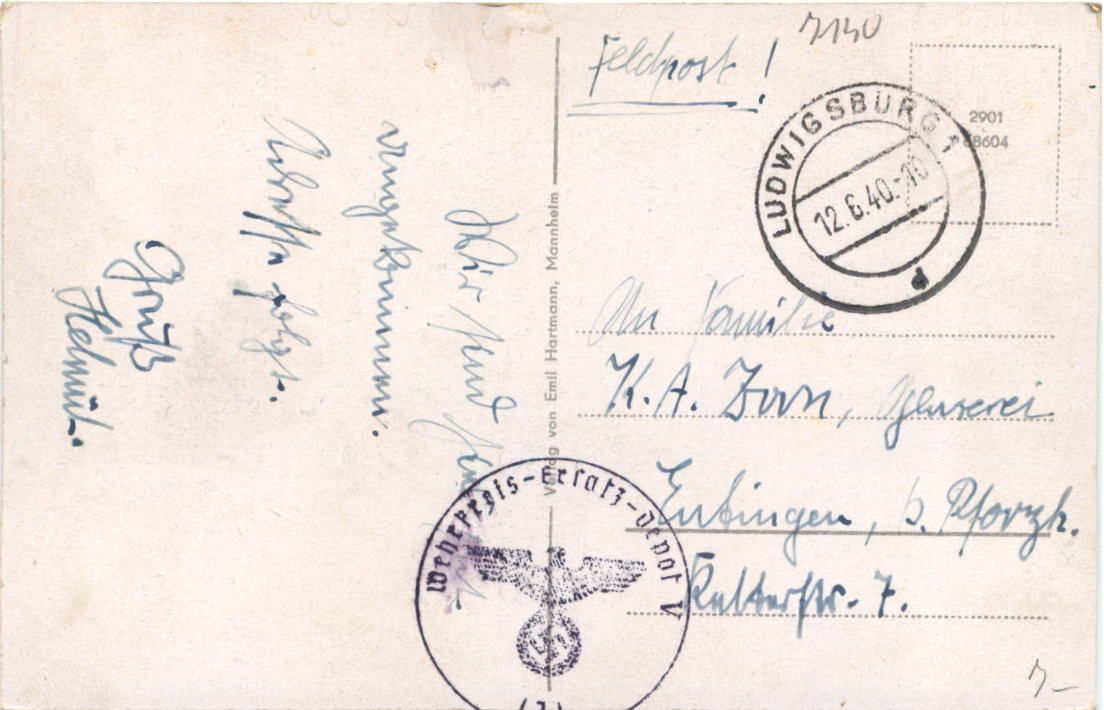 7140
Feldpost!
2901
68604
LUDWIGSBURG 1
12.6.40.-10
d
An Familie
K. A. Zorn, Glaserei
Eutingen, b. Pforzh.
Kelterstr. 7.
Verlag von Emil Hartmann, Mannheim
Wir sind
angekommen.
Adresse folgt.
Gruß
Helmut.
Wehrkreis-Ersatz-Depot V
7-